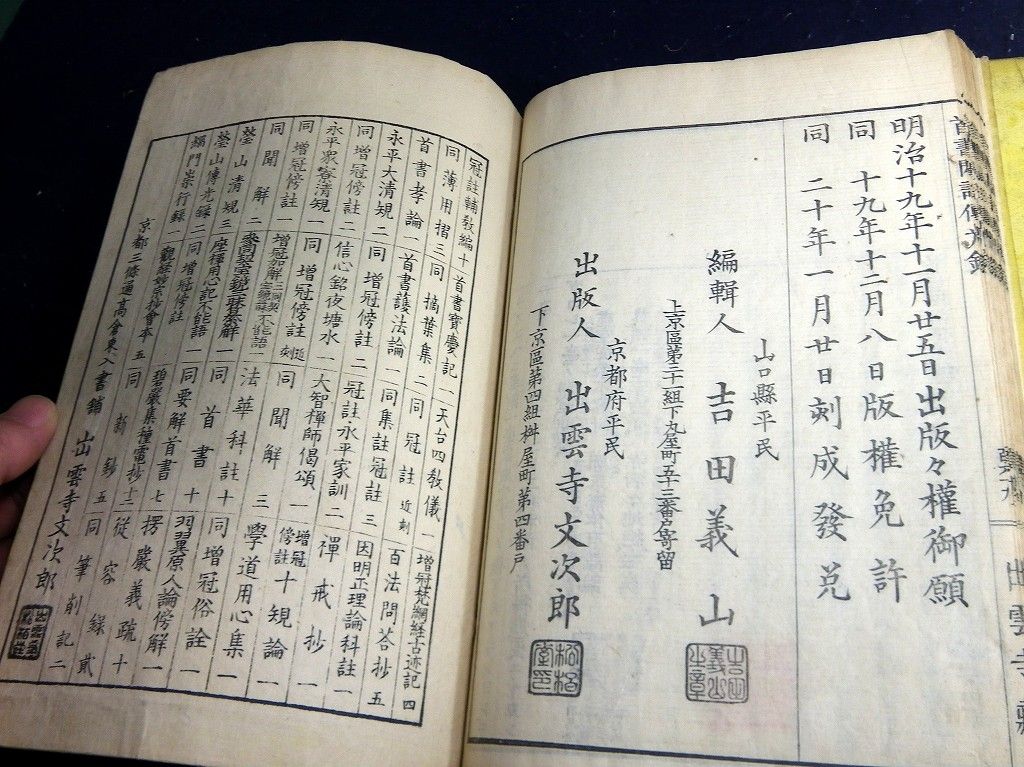 明治十九年十一月廿五日出版々權御願
同 十九年十二月八日版權免許
同 二十年一月廿日刻成發兌
山口縣平民
編輯人 吉田義山
上京區第三十組下丸屋町五十三番戸寄留
京都府平民
出版人 出雲寺文次郎
下京區第四組桝屋町第四番戸
冠註輔教編 十 首書寶慶記 一 天台四教儀 一 增冠梵網経古迹記 四
同 薄用摺 三 同 摘葉集 二 同 冠註 近刻 百法問答抄 五
首書孝論 一 首書護法論 一 同集註冠註 三 因明正理論科註 一
永平大清規 二 同 增冠傍註 二 冠註永平家訓 二 禪戒抄 一
同 增冠傍註 二 信心銘夜塘水 一 大智禪師偈頌 一 增冠傍註 十規論 一
永平衆寮清規 一 同 增冠傍註 近刻 同 聞解 三 學道用心集 一
同 增冠傍註 一 法華科註 十 同增冠俗詮 一
同 聞解 二 同 首書 十 羽翼原人論傍解 一
瑩山清規 三 座禪用心記不能語 一 同要解首書 七 楞嚴義疏 十
瑩山傳光録 二 同 增冠傍註 碧巖集種電抄 十三 從容録 貳
緇門崇行録 一 同 新鈔 五 同筆削記 二
京都三條通高倉東入書鋪 出雲寺文次郎